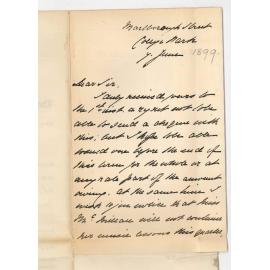 Marlborough Street
College Park
7 June 1899
Dear Sir,
I duly received yours to
the 1st inst & regret not to be
able to send a cheque with
this, but I hope to be able
to send one before the end of
this term for the whole or at
any rate part of the amount
owing. At the same time I
wish to give notice that Miss
Mc will not continue
her music lessons this quarter